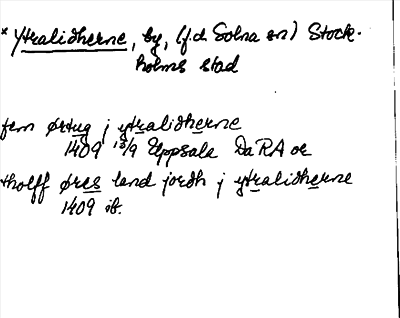 * Ytralidherne, by, (f.d. Solna sn) Stock-
holms stad
fem ørtug j ytralidherne
1409 13/9 Uppsala DaRA or
tholff øres land jordh j ytralidherne
1409 ib.